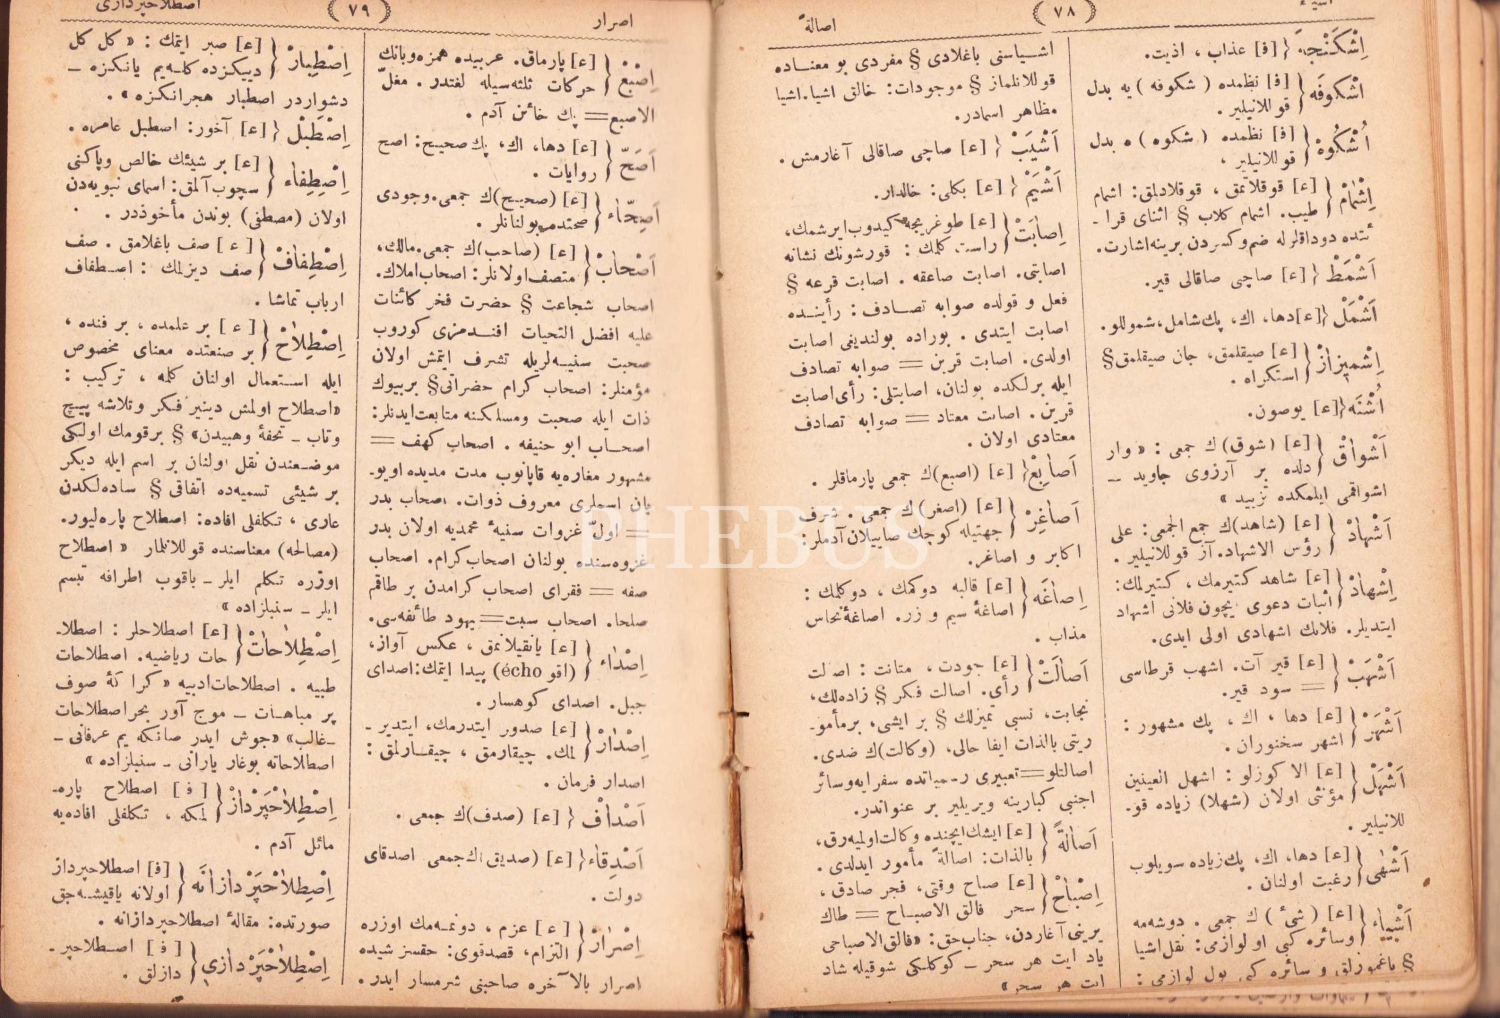 ﴿ ٧٨ ﴾
اصالةً
اِشْكَنْجَهْ { [ف] عذاب ، اذيت.
اشْكوفَه { [ف] نظمده ( شكوفه ) يه بدل
قوللانيلير .
اُشْكُوهْ { [ف] نظمده ( شكوه ) ه بدل
قوللانيلير .
اِشْمَامْ { [ع] قوقلانمق ، قوقلادلمق: اشمام
طيب. اشمام كلاب § اثناى قرا ـ
ئتده دوداقلرله ضم وكسردن برينه اشارت.
اَشْمَطْ { [ع] صاچى صاقالى قير.
اَشْمَلْ { [ع] دها، اك، پك شامل، شموللو.
اِشْمِيزَازْ { [ع] صيقلمق، جان صيقلمق §
استكراه .
اُشْنَه { [ع] يوصون.
اَشْوَاقْ { [ع] (شوق)ك جمعى : « وار
دلده بر آرزوى جاويد ــ
اشواقمى ايلمكده تزييد »
اَشْهَادْ { [ع] (شاهد)ك جمع الجمعى: على
رؤس الاشهاد. آز قوللانيلير .
اِشْهَادْ { [ع] شاهد كتيرمك ، كتيرلك:
اثبات دعوى ايچون فلانى اشهاد
ايتديلر. فلانك اشهادى اولى ايدى.
اَشْهَبْ { [ع] قير آت. اشهب قرطاسى
= سود قير.
اَشْهَرْ { [ع] دها ، اك ، پك مشهور :
اشهر سخنوران .
اَشْهَلْ { [ع] الا كوزلو : اشهل العينين
مؤنثى اولان (شهلا) زياده قو-
للانيلير .
اَشْهَى { [ع] دها، اك، پك زياده سويلوب
رغبت اولنان .
اَشْيَاء { [ع] ( شئ ) ك جمعى . دوشه مه
وسائره كبى او لوازمى: نقل اشيا
§ ياغمورلق و سائره كبى يول لوازمى :
اشياسنى باغلادى § مفردى بو معناده
قوللانلماز § موجودات: خالق اشيا. اشيا
مظاهر اسمادر.
اَشْيَبْ { [ع] صاچى صاقالى آغارمش .
اَشْيَمْ { [ع] بكلى: خالدار.
اِصَابَتْ { [ع] طوغريجه كيدوب ايرشمك،
راست كلمك : قورشونك نشانه
اصابتى. اصابت صاعقه . اصابت قرعه §
فعل و قولده صوابه تصادف : رأينده
اصابت ايتدى . بوراده بولنديغى اصابت
اولدى. اصابت قرين = صوابه تصادف
ايله برلكده بولنان، اصابتلى: رأى اصابت
قرين . اصابت معتاد = صوابه تصادف
معتادى اولان .
اَصَابِعْ { [ع] (اصبع)ك جمعى پارماقلر .
اَصَاغِرْ { [ع] (اصغر)ك جمعى . شرف
جهتيله كوچك صاييلان آدملر:
اكابر و اصاغر.
اِصَاغَه { [ع] قالبه دوكمك ، دوكلمك :
اصاغهٔ سيم و زر. اصاغهٔ نحاس
مذاب .
اَصَالَتْ { [ع] جودت ، متانت : اصالت
رأى. اصالت فكر § زاده لك،
نجابت، نسبى تميزلك § بر ايشى، برمأمو-
ريتى بالذات ايفا حالى، (وكالت)ك ضدى.
اصالتلو = تعبيرى رسمياتده سفرايه وسائر
اجنبى كبارينه ويريلير بر عنواندر.
اَصَالَةً { [ع] ايشك ايچنده وكالت اولميه رق،
بالذات: اصالةً مأمور ايدلدى .
اِصْبَاحْ { [ع] صباح وقتى، فجر صادق ،
سحر فالق الاصباح = طاك
يرينى آغاردن، جناب حق: «فالق الاصباحى
ياد ايت هر سحر ــ كوكلكى شوقيله شاد
ايت هر سحر»
﴿ ٧٩ ﴾
اصرار
اصطلاحپردازى
اِصْبَعْ { [ع] پارماق. عربيده همزه وبانك
حركات ثلثه سيله لغتدر . مغلّ
الاصبع = پك خائن آدم .
اَصَحّ { [ع] دها، اك، پك صحيح: اصح
روايات .
اَصِحَّاء { [ع] (صحيح)ك جمعى. وجودى
صحتده بولنانلر .
اَصْحَابْ { [ع] (صاحب)ك جمعى. مالك،
متصف اولانلر: اصحاب املاك.
اصحاب شجاعت § حضرت فخر كائنات
عليه افضل التحيات افندمزى كوروب
صحبت سنيه لريله تشرف ايتمش اولان
مؤمنلر: اصحاب كرام حضراتى § بربيوك
ذات ايله صحبت ومسلكنه متابعت ايدنلر:
اصحاب ابو حنيفه . اصحاب كهف =
مشهور مغاره يه قاپانوب مدت مديده اويو-
يان اسملرى معروف ذوات. اصحاب بدر
= اولّ غزوات سنيهٔ محمديه اولان بدر
غزوه سنده بولنان اصحاب كرام. اصحاب
صفه = فقراى اصحاب كرامدن بر طاقم
صلحا. اصحاب سبت = يهود طائفه سى.
اِصْدَاء { [ع] يانقيلانمق ، عكس آواز،
(اقو écho) پيدا ايتمك: اصداى
جبل. اصداى كوهسار .
اِصْدَارْ { [ع] صدور ايتدرمك، ايتدير-
لمك. چيقارمق ، چيقارلمق :
اصدار فرمان .
اَصْدَافْ { [ع] (صدف)ك جمعى .
اَصْدِقَاء { [ع] (صديق)ك جمعى اصدقاى
دولت .
اِصْرَارْ { [ع] عزم ، دونمه مك اوزره
التزام، قصد قوى: حقسز شيده
اصرار بالآخره صاحبنى شرمسار ايدر.
اِصْطِبَارْ { [ع] صبر ايتمك : « كل كل
ديديكزده كلميم يانكزه ــ
دشواردر اصطبار هجرانكزه » .
اِصْطَبْلْ { [ع] آخور: اصطبل عامره .
اِصْطِفَاء { [ع] بر شيئك خالص وپاكنى
سچوب آلمق: اسماى نبويه دن
اولان (مصطفى) بوندن مأخوذدر .
اِصْطِفَافْ { [ع] صف باغلامق . صف
صف ديزلمك : اصطفاف
ارباب تماشا .
اِصْطِلَاحْ { [ع] بر علمده ، بر فنده ،
بر صنعتده معناى مخصوص
ايله استعمال اولنان كلمه ، تركيب :
«اصطلاح اولمش دينير فكر وتلاشه پيچ
وتاب ــ تحفهٔ وهبيدن» § بر قومك اولكى
موضعندن نقل اولنان بر اسم ايله ديكر
بر شيئى تسميه ده اتفاقى § ساده لكدن
عارى ، تكلفلى افاده: اصطلاح پاره ليور.
(مصالحه) معناسنده قوللانلماز « اصطلاح
اوزره تكلم ايلر ــ باقوب اطرافه تبسم
ايلر ــ سنبلزاده »
اِصْطِلَاحَاتْ { [ع] اصطلاحلر : اصطلا-
حات رياضيه. اصطلاحات
طبيه . اصطلاحات ادبيه « كرا كهٔ صوف
پر مباهات ــ موج آور بحر اصطلاحات
ــ غالب» «جوش ايدر صانكه يم عرفانى ــ
اصطلاحاته بوغار يارانى ــ سنبلزاده »
اِصْطِلَاحْپَرْدَازْ { [ف] اصطلاح پاره-
لمكه ، تكلفلى افاده يه
مائل آدم .
اِصْطِلَاحْپَرْدَازَانَه { [ف] اصطلاحپرداز
اولانه ياقيشه جق
صورتده: مقالهٔ اصطلاحپردازانه .
اِصْطِلَاحْپَرْدَازِى { [ف] اصطلاحپر-
دازلق .
PHEBUS